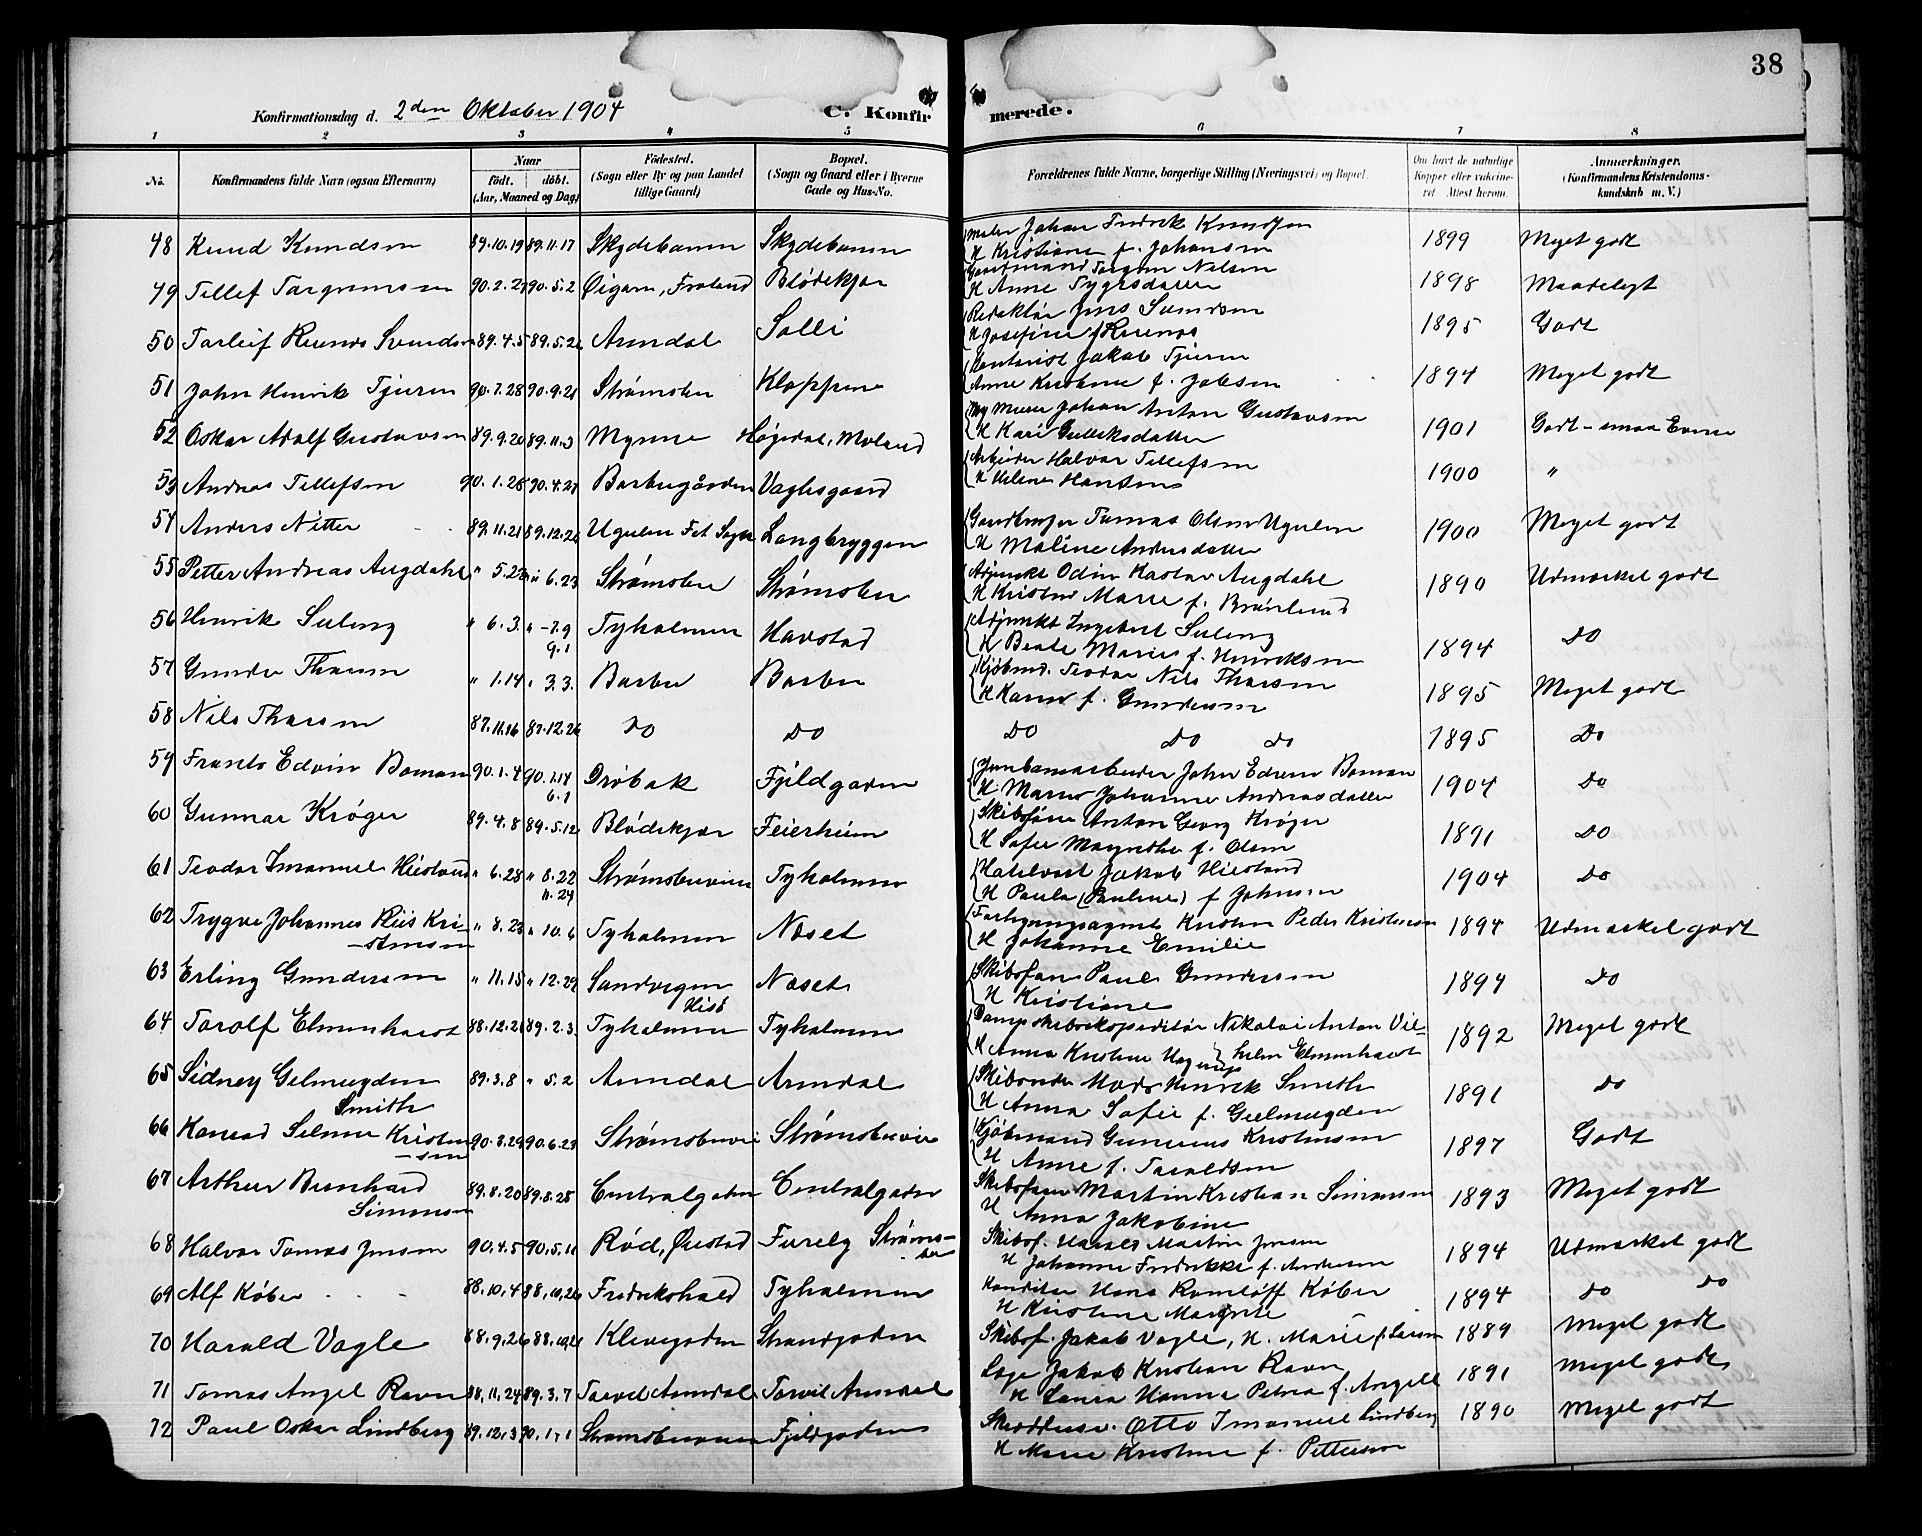 38
Konfirmationsdag d. 2den Oktober 1904
C. Konfirmerede.
1 2 3 4 5 6 7 8
No.
Konfirmandens fulde Navn (ogsaa Efternavn)
Naar
født. døbt.
(Aar, Maaned og Dag)
Fødested.
(Sogn eller By og paa Landet
tillige Gaard)
Bopæl.
(Sogn og Gaard eller i Byerne
Gade og Hus-No.
Forældrenes fulde Navne, borgerlige Stilling (Næringsvei) og Bopæl.
Om havt de naturlige
Kopper eller vakcine-
ret. Attest herom.
Anmærkninger.
(Konfirmandens Kristendoms-
kundskab m. V.)
48 Knud Knudsen 89.10.19 89.11.17 Skydebanen Skydebanen Maler Johan Fredrik Knudsen 1899 Meget godt
H Kristiane f. Johansen
49 Tellef Torgrimsen 90.2.27 90.5.2 Øigarn, Froland Blødekjær Gaardmand Torgrim Nilsen 1898 Maadeligt
H Anne Tygesdatter
50 Torleif Reenås Svendsen 89.4.5 89.5.26 Arendal Solli Redaktør Jens Svendsen 1895 Godt
H Josefine f Reenås
51 John Henrik Tjeren 90.7.28 90.9.21 Strømsbu Kloppene Kontorist Jakob Tjeren 1894 Meget godt
Anne Kristine f. Jobsen
52 Oskar Adolf Gustavsen 89.9.20 89.11.3 Myrene Høgedal, Moland Murer Johan Anton Gustavsen 1901 Godt - smaa Evner
H Kari Gulleksdatter
53 Andreas Tellefsen 90.1.28 90.4.27 Barbugården Vaglesgaard Arbeider Halvor Tellefsen 1900 "
H Helene Hansen
54 Anders Nitter 89.11.21 89.12.26 Ugulen Fet Sogn Langbryggen Gaardbruger Tomas Olsen Ugulen 1900 Meget godt
H Maline Andersdatter
55 Petter Andreas Augdahl " 5.22 " 6.23 Strømsbu Strømsbu Adjunkt Odin Kastor Augdahl 1890 Udmærket godt
H Kristine Marie f. Brønlund
56 Henrik Seling " 6.3 " 7.9 Tyholmen Havstad Adjunkt Ingebert Seling 1894 Do
9.1 H Beate Marie f. Henriksen
57 Gunder Thorsen " 1.14 " 3.3. Barbu Barbu Kjøbmd. Teodor Nils Thorsen 1895 Meget godt
H Karen f. Gundersen
58 Nils Thorsen 87.11.16 87.12.26 Do Do Do Do Do 1895 Do
59 Frants Edvin Boman 90.1.4 90.1.14 Drøbak Fjeldgaden Jernbanearbeider John Edvin Boman 1904 Do
6.1 H Maren Johanne Andreasdatter
60 Gunnar Krøger 89.4.8 89.5.12 Blødekjær Feierheien Skibsfører Anton Georg Krøger 1891 Do
H Sofie Margrethe f. Olsen
61 Teodor Imanuel Hiestand " 6.28 " 8.22 Strømsbuveien Tyholmen Hotelvert Jakob Hiestand 1904 Do
11.24 H Paula (Pauline) f Johnsen
62 Trygve Johannes Riis Kri- " 8.23 " 10.6 Tyholmen Næset Forligningsagent Kristen Peder Kristensen 1894 Udmærket godt
-stensen H Johanne Emilie
63 Erling Gundersen " 11.15 " 12.29 Sandvigen Næset Skibsfører Paul Gundersen 1894 Do
Hisø H Kristiane
64 Torolf Elmenhardt 88.12.21 89.2.3. Tyholmen Tyholmen Dampskibsekspeditør Nikolai Anton Vil- 1892 Meget godt
H Anna Kristine Hagerup helm Elmenhardt
65 Sidney Gelmuyden 89.3.8 " 5.2 Arendal Arendal Skibsreder Mads Henrik Smith 1891 Do
Smith H Anna Sofie f. Gelmuyden
66 Konrad Selmer Kristen 90.3.29 90.6.29 Strømsbuvei Strømsbuvei Kjøbmand Gunerius Kristensen 1897 Godt
-sen H Anne f. Taraldsen
67 Arthur Bernhard 89.8.20 89.8.28 Centralgaden Centralgaden Skibsfører Martin Kristian Simonsen 1893 Meget godt
Simonsen H Anna Jakobine
68 Halvor Tomas Jensen 90.4.5 90.5.11 Rød, Øiestad Furely Strøms- Skibsf. Harald Martin Jensen 1894 Udmærket godt
bu H Johanne Fredrikke f. Andersen
69 Alf Køber 88.10.4 88.10.26 Fredrikshald Tyholmen Konditor Hans Romløff Køber 1894 Do Do
H Kristine Margrete
70 Harald Vagle 88.9.26 88.10.26 Klevegaden Strandgaden Skibsf. Jakob Vagle, H. Marie f. Larsen 1889 Meget godt
71 Tomas Angel Ravn 88.11.24 89.3.7 Torvet Arendal Torvet Arendal Læge Jakob Kristian Ravn 1891 Meget godt
H Laura Hanna Petrea f. Angell
72 Paul Oskar Lindberg 89.12.3 90.1.1 Strømsbuveien Fjeldgaden Skrædderm. Otto Imanuel Lindberg 1890 Meget godt
H Marie Kristine f. Petterson